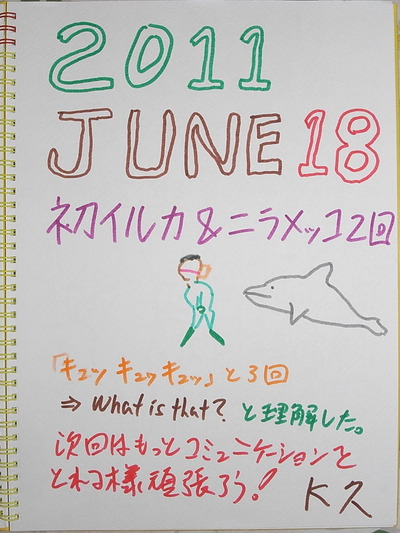 2011
JUNE 18
初イルカ&ニラメッコ2回
「キュッ キュッキュッ」と3回
⇒ What is that? と理解した。
次回はもっとコミュニケーションを
とれる様頑張ろう!
K久